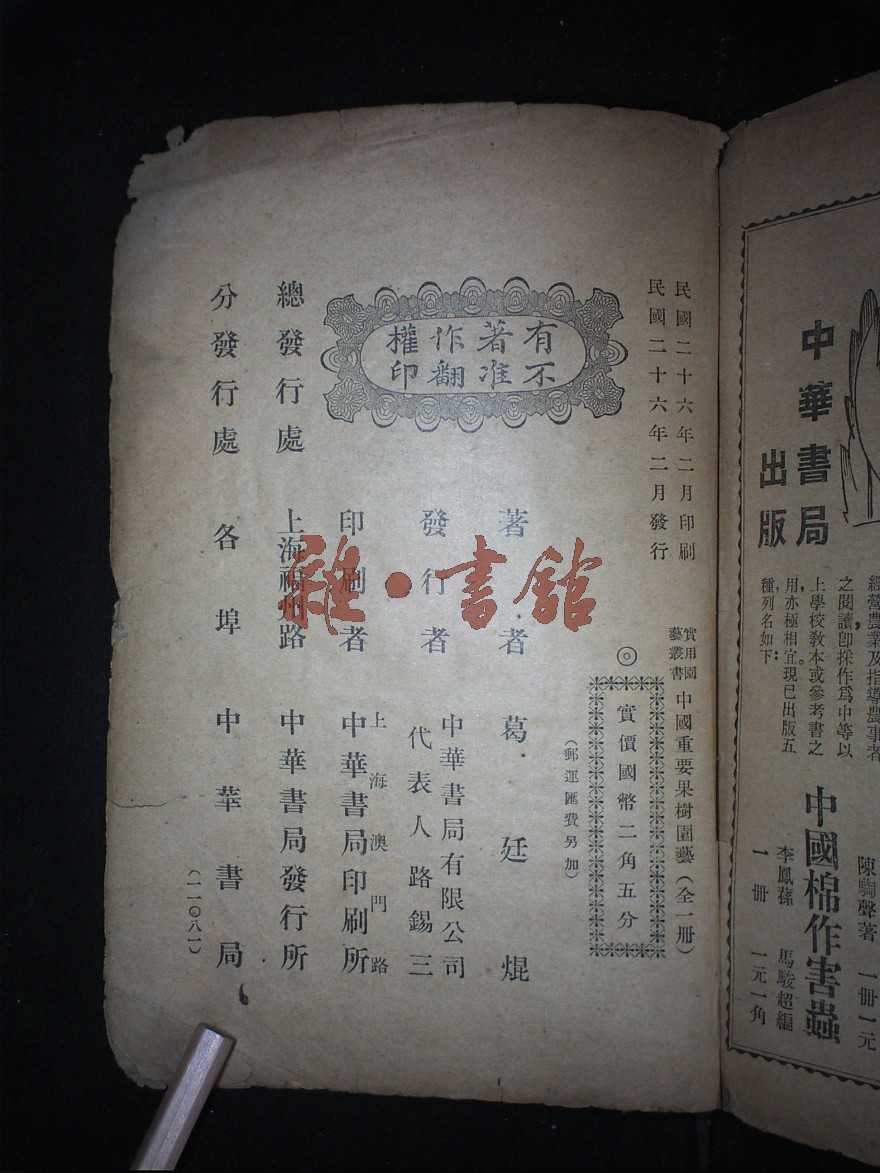 民國二十六年二月印刷
民國二十六年二月發行
實用園藝叢書
中國重要果樹園藝(全一册)
◎
實價國幣二角五分
(郵運匯費另加)
有著作權
不准翻印
著者 葛廷焜
發行者 中華書局有限公司
代表人路錫三
印刷者 上海澳門路
中華書局印刷所
總發行處 上海福州路 中華書局發行所
分發行處 各埠 中華書局
(一一〇八一)
雜·書館
中華書局
出版
經營農業及指導農事者
之閱讀,卽採作爲中等以
上學校敎本或參考書之
用,亦極相宜。現已出版五
種,列名如下:
陳騊聲著 一册一元
中國棉作害蟲
李鳳蓀 馬駿超編
一册 一元一角